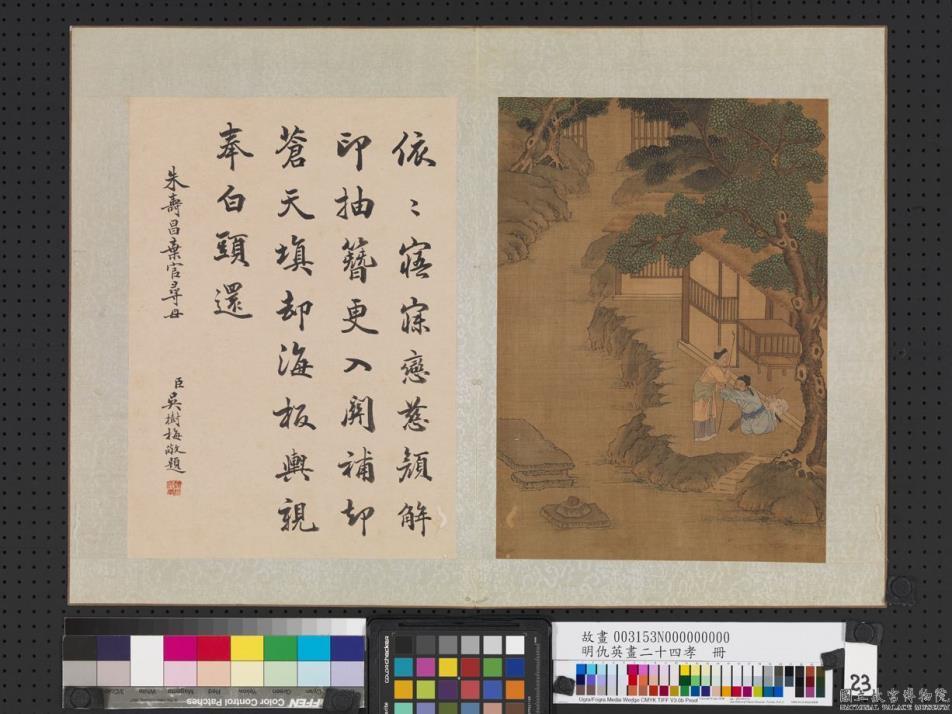 依〻寤寐戀慈顏解
印抽簪更入關補却
蒼天填却海板輿親
奉白頭還
朱壽昌棄官尋母
臣吳樹梅敬題
故畫 003153N000000000
明仇英畫二十四孝 冊
Ugra/Fogra Media Wedge CMYK TIFF V3.0b Proof
23
colorchecker
TIFFEN Color Control Patches
國立故宮博物院
NATIONAL PALACE MUSEUM